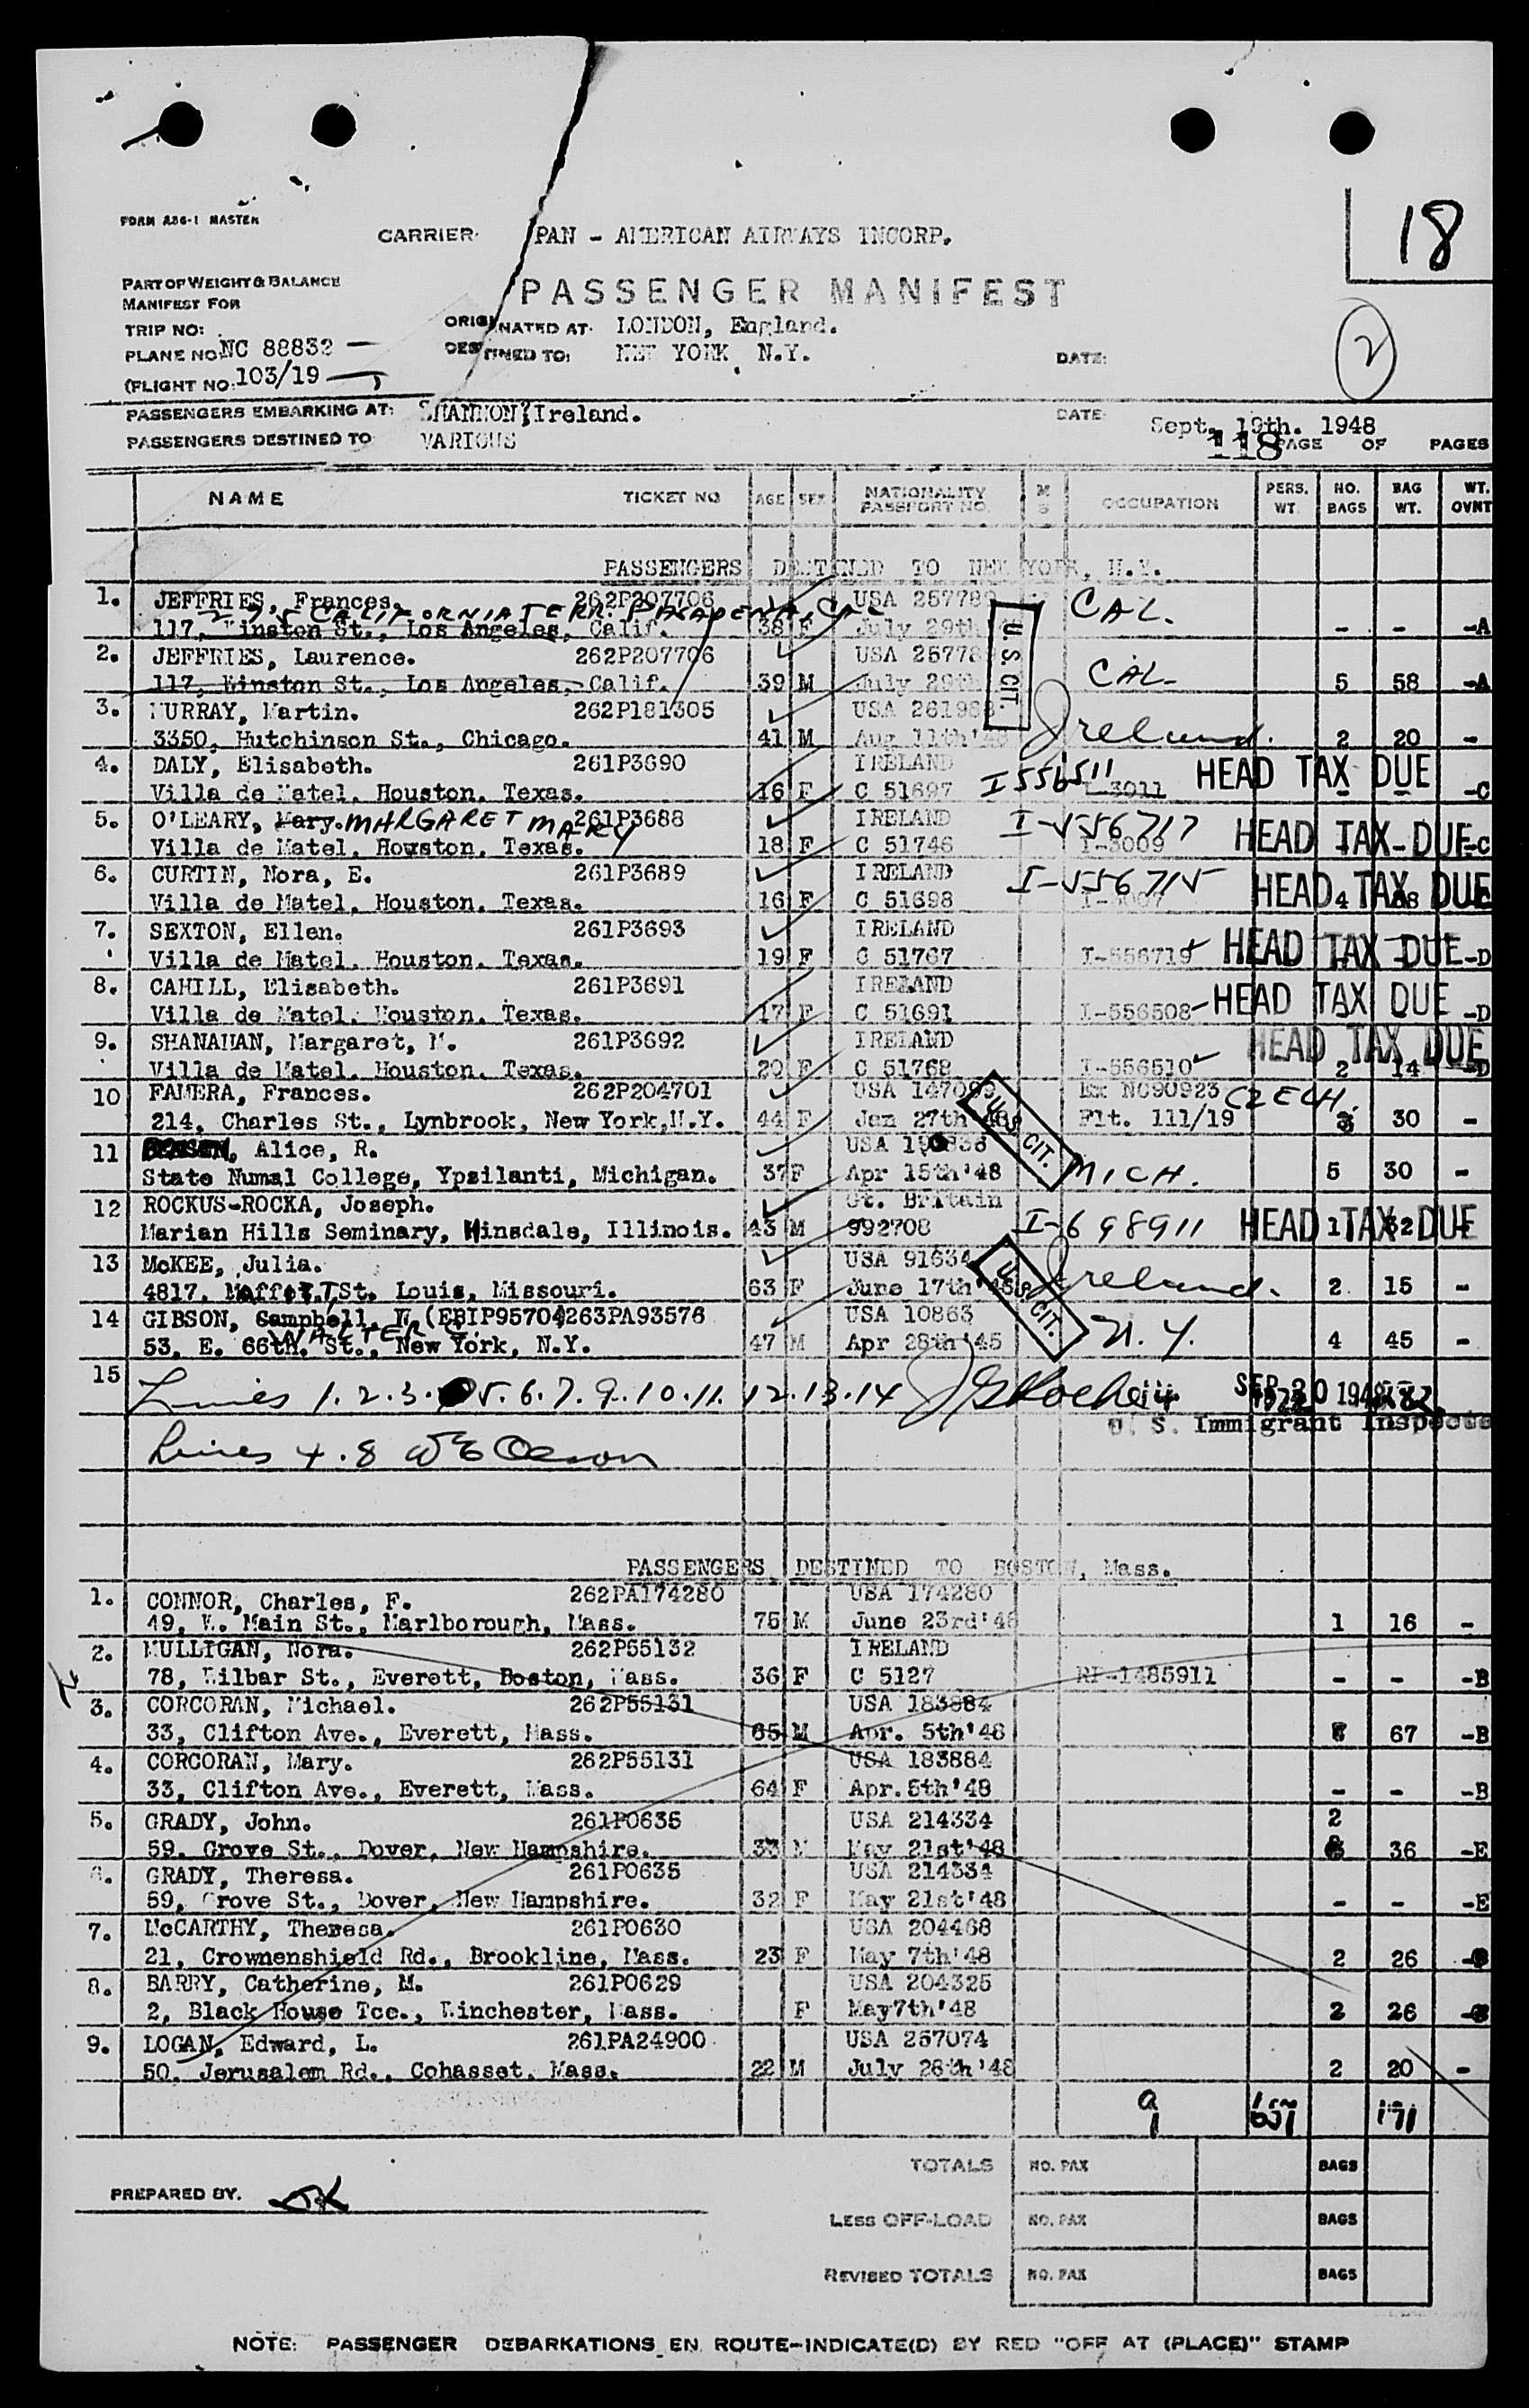 18
FORM A36-1 MASTER
CARRIER PAN - AMERICAN AIRWAYS INCORP.
PART OF WEIGHT & BALANCE
MANIFEST FOR
PASSENGER MANIFEST
TRIP NO:
ORIGINATED AT. LONDON, England.
PLANE NO NC 88832
DESTINED TO: NEW YORK N.Y.
DATE:
2
(FLIGHT NO: 103/19
PASSENGERS EMBARKING AT: SHANNON, Ireland.
DATE Sept. 19th. 1948
PASSENGERS DESTINED TO VARIOUS
118 PAGE OF PAGES
NAME TICKET NO AGE SEX NATIONALITY PASSPORT NO. M S OCCUPATION PERS. WT. NO. BAGS BAG WT. WT. OVNT
PASSENGERS DESTINED TO NEW YORK, N.Y.
1. JEFFRIES, Frances. 262P207706 USA 25778 CAL.
CALIFORNIA TERR. PASADENA, CAL
117, Winston St., Los Angeles, Calif. 38 F July 29th - - -A
U.S. CIT.
2. JEFFRIES, Laurence. 262P207706 USA 25778 CAL
117, Winston St., Los Angeles, Calif. 39 M July 29th 5 58 -A
3. MURRAY, Martin. 262P181305 USA 261968 Ireland.
3350, Hutchinson St., Chicago. 41 M Aug 11th'48 2 20 -
4. DALY, Elisabeth. 261P3690 IRELAND I556511 HEAD TAX DUE
Villa de Matel, Houston, Texas. 16 F C 51697 3011 - - -C
5. O'LEARY, Mary. MARGARET MARY 261P3688 IRELAND I-556717 HEAD TAX DUE
Villa de Matel, Houston, Texas. 18 F C 51746 I-3009 - - -C
6. CURTIN, Nora, E. 261P3689 IRELAND I-556715 HEAD TAX DUE
Villa de Matel, Houston, Texas. 16 F C 51698 4
7. SEXTON, Ellen. 261P3693 IRELAND HEAD TAX DUE
Villa de Matel, Houston, Texas. 19 F C 51767 I-556719 -D
8. CAHILL, Elisabeth. 261P3691 IRELAND HEAD TAX DUE
Villa de Matel, Houston, Texas. 17 F C 51691 I-556508 -D
9. SHANAHAN, Margaret, M. 261P3692 IRELAND HEAD TAX DUE
Villa de Matel, Houston, Texas. 20 F C 51768 I-556510 2 14 -D
10 FAMERA, Frances. 262P204701 USA 14709 Ex NC90923 CZECH.
214, Charles St., Lynbrook, New York, N.Y. 44 F Jan 27th '48 Flt. 111/19 3 30 -
U.S. CIT.
11 Alice, R. USA
State Numal College, Ypsilanti, Michigan. 37 F Apr 15th'48 MICH. 5 30 -
12 ROCKUS-ROCKA, Joseph. Gt. Britain
Marian Hills Seminary, Hinsdale, Illinois. 43 M 992708 I-698911 HEAD TAX DUE 1 32
13 McKEE, Julia. USA 91634
4817, St. Louis, Missouri. 63 F June 17th Ireland. 2 15 -
U.S. CIT.
14 GIBSON, Campbell, W (EBIP95704263PA93576 USA 10863
WALTER
53, E. 66th. St., New York, N.Y. 47 M Apr 28th'45 N.Y. 4 45 -
15 Lines 1.2.3.5.6.7.9.10.11.12.13.14 SEP 20 1948
U. S. Immigrant Inspector
Lines 4.8 WE Olson
PASSENGERS DESTINED TO BOSTON, Mass.
1. CONNOR, Charles, F. 262PA174280 USA 174280
49, W. Main St., Marlborough, Mass. 75 M June 23rd'48 1 16 -
2. MULLIGAN, Nora. 262P55132 IRELAND
78, Wilbar St., Everett, Boston, Mass. 36 F C 5127 RP-1485911 - - -B
3. CORCORAN, Michael. 262P55131 USA 183884
33, Clifton Ave., Everett, Mass. 65 M Apr. 5th'48 67 -B
4. CORCORAN, Mary. 262P55131 USA 183884
33, Clifton Ave., Everett, Mass. 64 F Apr.5th'48 - - -B
5. GRADY, John. 261P0635 USA 214334 2
59, Grove St., Dover, New Hampshire. 33 M May 21st'48 36 -E
6. GRADY, Theresa. 261P0635 USA 214334
59, Grove St., Dover, New Hampshire. 32 F May 21st'48 - - -E
7. McCARTHY, Theresa. 261P0630 USA 204468
21, Crownenshield Rd., Brookline, Mass. 23 F May 7th'48 2 26
8. BARRY, Catherine, M. 261P0629 USA 204325
2, Black House Tce., Winchester, Mass. F May7th'48 2 26
9. LOGAN, Edward, L. 261PA24900 USA 257074
50, Jerusalem Rd., Cohasset, Mass. 22 M July 28th'48 2 20 -
9 191
TOTALS NO. PAX BAGS
PREPARED BY.
LESS OFF-LOAD NO. PAX BAGS
REVISED TOTALS NO. PAX BAGS
NOTE: PASSENGER DEBARKATIONS EN ROUTE-INDICATE(D) BY RED "OFF AT (PLACE)" STAMP